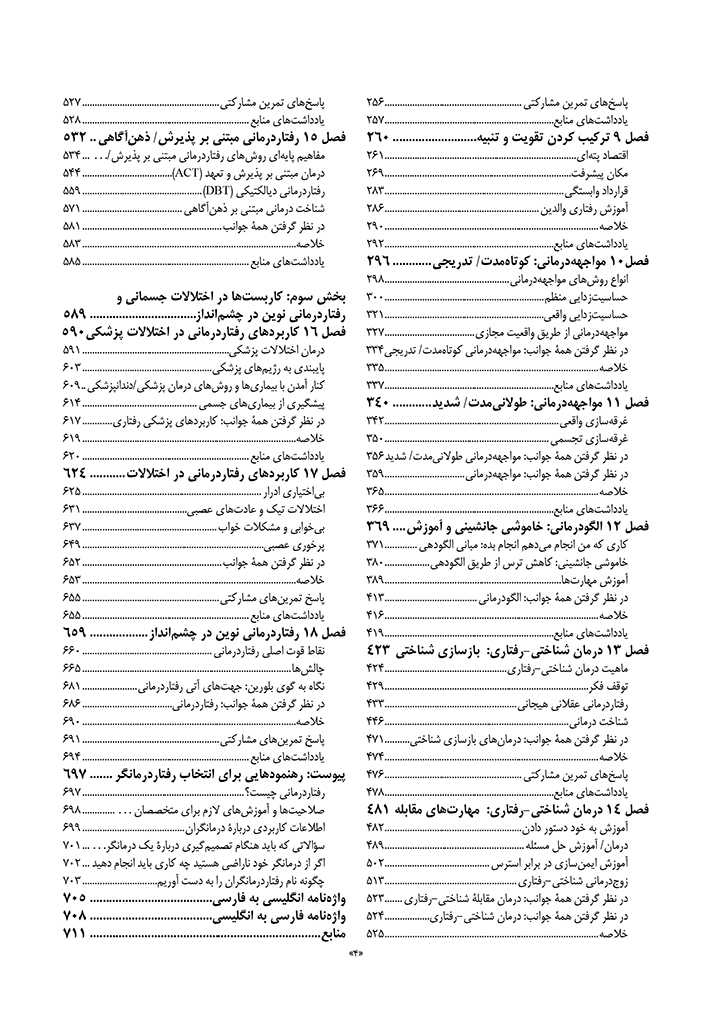 پاسخ‌های تمرین مشارکتی ........ ۲۵۶
یادداشت‌های منابع ........ ۲۵۷
فصل ۹ ترکیب کردن تقویت و تنبیه ........ ۲۶۰
اقتصاد پته‌ای ........ ۲۶۱
مکان پیشرفت ........ ۲۶۹
قرارداد وابستگی ........ ۲۸۳
آموزش رفتاری والدین ........ ۲۸۶
خلاصه ........ ۲۹۰
یادداشت‌های منابع ........ ۲۹۲
فصل ۱۰ مواجهه‌درمانی: کوتاه‌مدت/ تدریجی ........ ۲۹۶
انواع روش‌های مواجهه‌درمانی ........ ۲۹۸
حساسیت‌زدایی منظم ........ ۳۰۰
حساسیت‌زدایی واقعی ........ ۳۲۱
مواجهه‌درمانی از طریق واقعیت مجازی ........ ۳۲۷
در نظر گرفتن همهٔ جوانب: مواجهه‌درمانی کوتاه‌مدت/ تدریجی ۳۳۴
خلاصه ........ ۳۳۵
یادداشت‌های منابع ........ ۳۳۷
فصل ۱۱ مواجهه‌درمانی: طولانی‌مدت/ شدید ........ ۳۴۰
غرقه‌سازی واقعی ........ ۳۴۲
غرقه‌سازی تجسمی ........ ۳۵۰
در نظر گرفتن همهٔ جوانب: مواجهه‌درمانی طولانی‌مدت/ شدید ۳۵۶
در نظر گرفتن همهٔ جوانب: مواجهه‌درمانی ........ ۳۵۹
خلاصه ........ ۳۶۵
یادداشت‌های منابع ........ ۳۶۶
فصل ۱۲ الگودرمانی: خاموشی جانشینی و آموزش .... ۳۶۹
کاری که من انجام می‌دهم انجام بده: مبانی الگودهی ........ ۳۷۱
خاموشی جانشینی: کاهش ترس از طریق الگودهی ........ ۳۸۰
آموزش مهارت‌ها ........ ۳۸۹
در نظر گرفتن همهٔ جوانب: الگودرمانی ........ ۴۱۳
خلاصه ........ ۴۱۶
یادداشت‌های منابع ........ ۴۱۹
فصل ۱۳ درمان شناختی-رفتاری: بازسازی شناختی ۴۲۳
ماهیت درمان شناختی-رفتاری ........ ۴۲۴
توقف فکر ........ ۴۲۹
رفتاردرمانی عقلانی هیجانی ........ ۴۳۳
شناخت درمانی ........ ۴۴۶
در نظر گرفتن همهٔ جوانب: درمان‌های بازسازی شناختی ........ ۴۷۱
خلاصه ........ ۴۷۴
پاسخ‌های تمرین مشارکتی ........ ۴۷۶
یادداشت‌های منابع ........ ۴۷۸
فصل ۱۴ درمان شناختی-رفتاری: مهارت‌های مقابله ۴۸۱
آموزش به خود دستور دادن ........ ۴۸۲
درمان/ آموزش حل مسئله ........ ۴۸۹
آموزش ایمن‌سازی در برابر استرس ........ ۵۰۲
زوج‌درمانی شناختی-رفتاری ........ ۵۱۳
در نظر گرفتن همهٔ جوانب: درمان مقابلهٔ شناختی-رفتاری ..... ۵۲۳
در نظر گرفتن همهٔ جوانب: درمان شناختی-رفتاری ........ ۵۲۴
خلاصه ........ ۵۲۵
پاسخ‌های تمرین مشارکتی ........ ۵۲۷
یادداشت‌های منابع ........ ۵۲۸
فصل ۱۵ رفتاردرمانی مبتنی بر پذیرش/ ذهن‌آگاهی .. ۵۳۲
مفاهیم پایه‌ای روش‌های رفتاردرمانی مبتنی بر پذیرش/. . . ... ۵۳۴
درمان مبتنی بر پذیرش و تعهد (ACT) ........ ۵۴۴
رفتاردرمانی دیالکتیکی (DBT) ........ ۵۵۹
شناخت درمانی مبتنی بر ذهن‌آگاهی ........ ۵۷۱
در نظر گرفتن همهٔ جوانب ........ ۵۸۱
خلاصه ........ ۵۸۳
یادداشت‌های منابع ........ ۵۸۵
بخش سوم: کاربست‌ها در اختلالات جسمانی و
رفتاردرمانی نوین در چشم‌انداز ........ ۵۸۹
فصل ۱۶ کاربردهای رفتاردرمانی در اختلالات پزشکی ۵۹۰
درمان اختلالات پزشکی ........ ۵۹۱
پایبندی به رژیم‌های پزشکی ........ ۶۰۳
کنار آمدن با بیماری‌ها و روش‌های درمان پزشکی/دندانپزشکی .. ۶۰۹
پیشگیری از بیماری‌های جسمی ........ ۶۱۴
در نظر گرفتن همهٔ جوانب: کاربردهای پزشکی رفتاری ........ ۶۱۷
خلاصه ........ ۶۱۹
یادداشت‌های منابع ........ ۶۲۰
فصل ۱۷ کاربردهای رفتاردرمانی در اختلالات ........ ۶۲۴
بی‌اختیاری ادرار ........ ۶۲۵
اختلالات تیک و عادت‌های عصبی ........ ۶۳۱
بی‌خوابی و مشکلات خواب ........ ۶۳۷
پرخوری عصبی ........ ۶۴۹
در نظر گرفتن همهٔ جوانب ........ ۶۵۲
خلاصه ........ ۶۵۳
پاسخ تمرین‌های مشارکتی ........ ۶۵۵
یادداشت‌های منابع ........ ۶۵۵
فصل ۱۸ رفتاردرمانی نوین در چشم‌انداز ........ ۶۵۹
نقاط قوت اصلی رفتاردرمانی ........ ۶۶۰
چالش‌ها ........ ۶۶۵
نگاه به گوی بلورین: جهت‌های آتی رفتاردرمانی ........ ۶۸۱
در نظر گرفتن همهٔ جوانب: رفتاردرمانی ........ ۶۸۶
خلاصه ........ ۶۹۰
پاسخ تمرین‌های مشارکتی ........ ۶۹۱
یادداشت‌های منابع ........ ۶۹۴
پیوست: رهنمودهایی برای انتخاب رفتاردرمانگر ....... ۶۹۷
رفتاردرمانی چیست؟ ........ ۶۹۷
صلاحیت‌ها و آموزش‌های لازم برای متخصصان . . . ........ ۶۹۸
اطلاعات کاربردی دربارهٔ درمانگران ........ ۶۹۹
سؤالاتی که باید هنگام تصمیم‌گیری دربارهٔ یک درمانگر. . . .... ۷۰۱
اگر از درمانگر خود ناراضی هستید چه کاری باید انجام دهید ... ۷۰۲
چگونه نام رفتاردرمانگران را به دست آوریم ........ ۷۰۳
واژه‌نامه انگلیسی به فارسی ........ ۷۰۵
واژه‌نامه فارسی به انگلیسی ........ ۷۰۸
منابع ........ ۷۱۱
«۴»